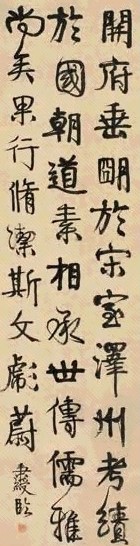 開府垂明於宋室澤州考績
於國朝道素相承世傳儒雅
尚矣果行脩潔斯文彪蔚
秉綬臨